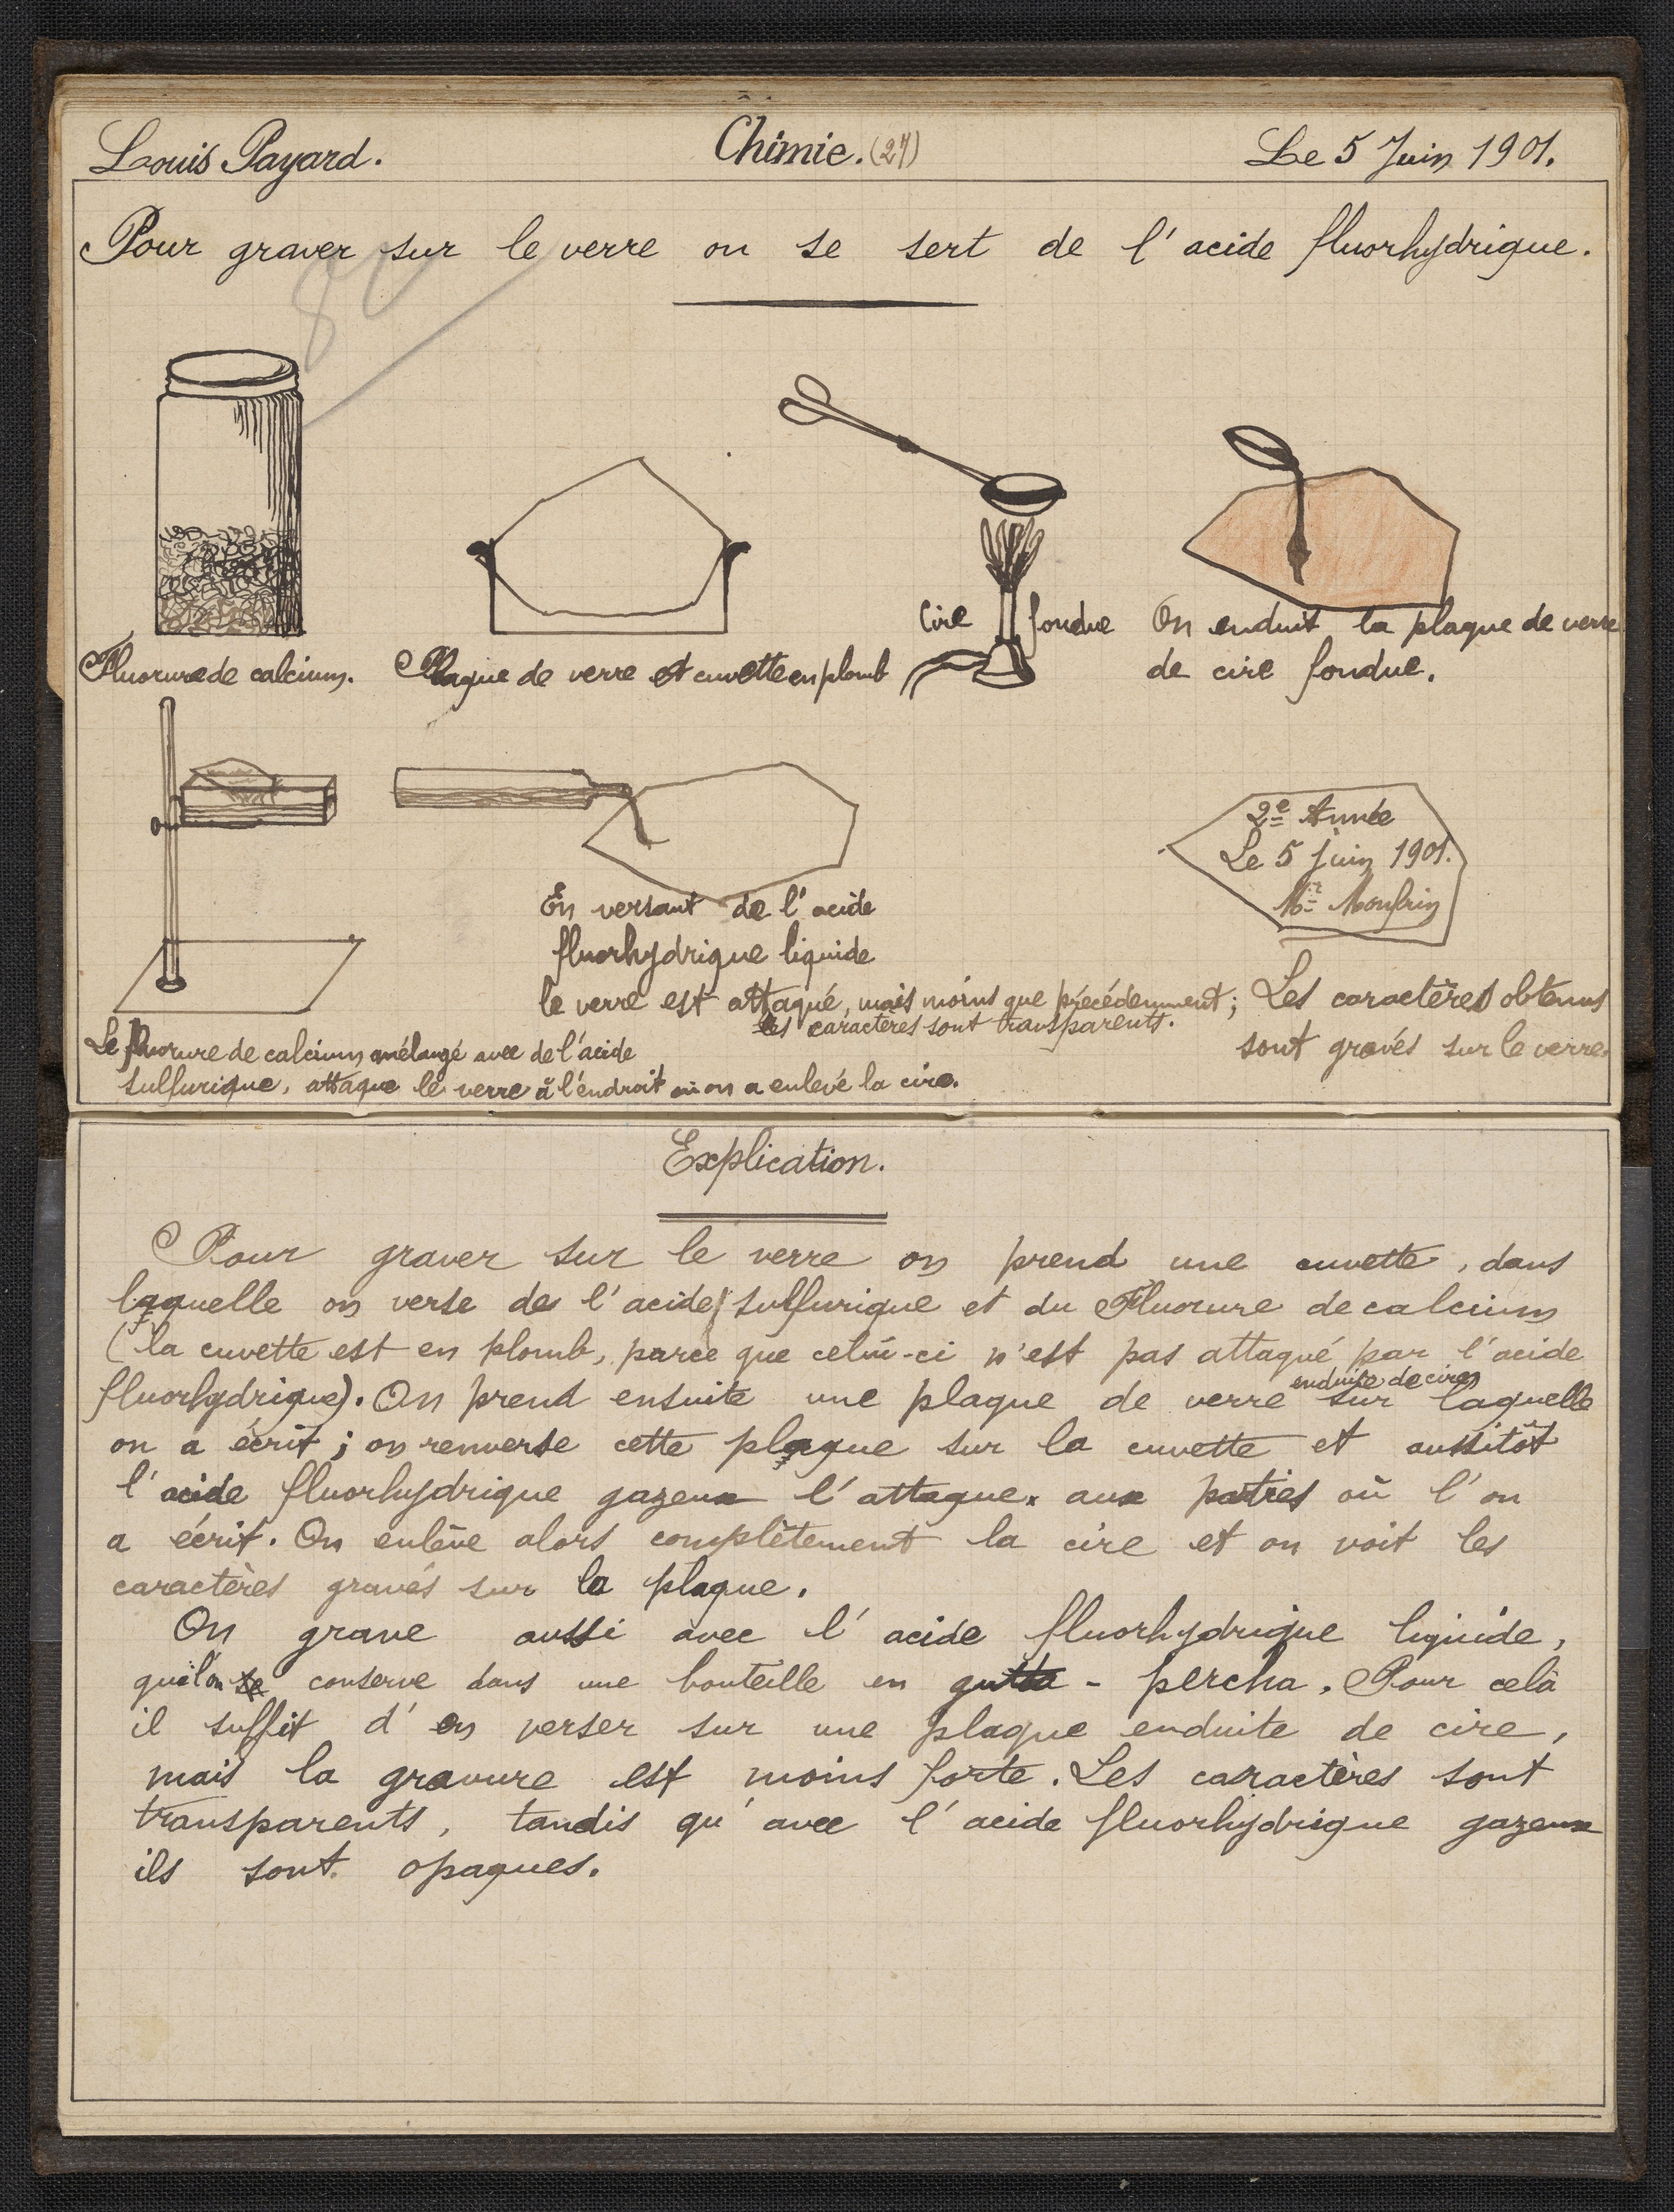 Louis Payard.
Chimie. (27)
Le 5 Juin 1901.
Pour graver sur le verre on se sert de l'acide fluorhydrique.
Fluorure de calcium.
Plaque de verre et cuvette en plomb
Cire fondue
On enduit la plaque de verre
de cire fondue.
En versant de l'acide
fluorhydrique liquide
le verre est attaqué, mais moins que précédemment;
les caractères sont transparents.
2e Année
Le 5 juin 1901.
Mr
Les caractères obtenus
sont gravés sur le verre.
Le fluorure de calcium mélangé avec de l'acide
sulfurique, attaque le verre à l'endroit où on a enlevé la cire.
Explication.
Pour graver sur le verre on prend une cuvette, dans
laquelle on verse de l'acide sulfurique et du Fluorure de calcium
(la cuvette est en plomb, parce que celui-ci n'est pas attaqué par l'acide
fluorhydrique). On prend ensuite une plaque de verre enduite de cire, sur laquelle
on a écrit; on renverse cette plaque sur la cuvette et aussitôt
l'acide fluorhydrique gazeux l'attaque aux parties où l'on
a écrit. On enlève alors complètement la cire et on voit les
caractères gravés sur la plaque.
On grave aussi avec l'acide fluorhydrique liquide,
que l'on conserve dans une bouteille en gutta-percha. Pour celà
il suffit d'en verser sur une plaque enduite de cire,
mais la gravure est moins forte. Les caractères sont
transparents, tandis qu'avec l'acide fluorhydrique gazeux
ils sont opaques.